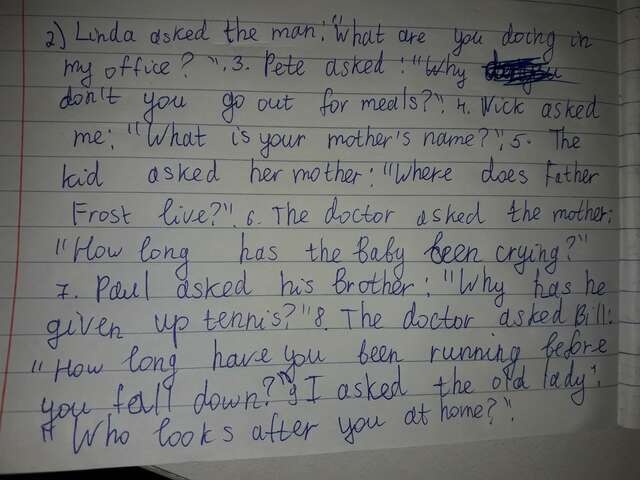 2) Linda asked the man: "What are you doing in
my office? ". 3. Pete asked : "Why
don't you go out for meals?". 4. Nick asked
me: "What is your mother's name?". 5. The
kid asked her mother: "Where does Father
Frost live?". 6. The doctor asked the mother:
"How long has the baby been crying?"
7. Paul asked his Brother: "Why has he
given up tennis?" 8. The doctor asked Bill:
"How long have you been running before
you fall down?" 9 I asked the old lady:
"Who looks after you at home?".